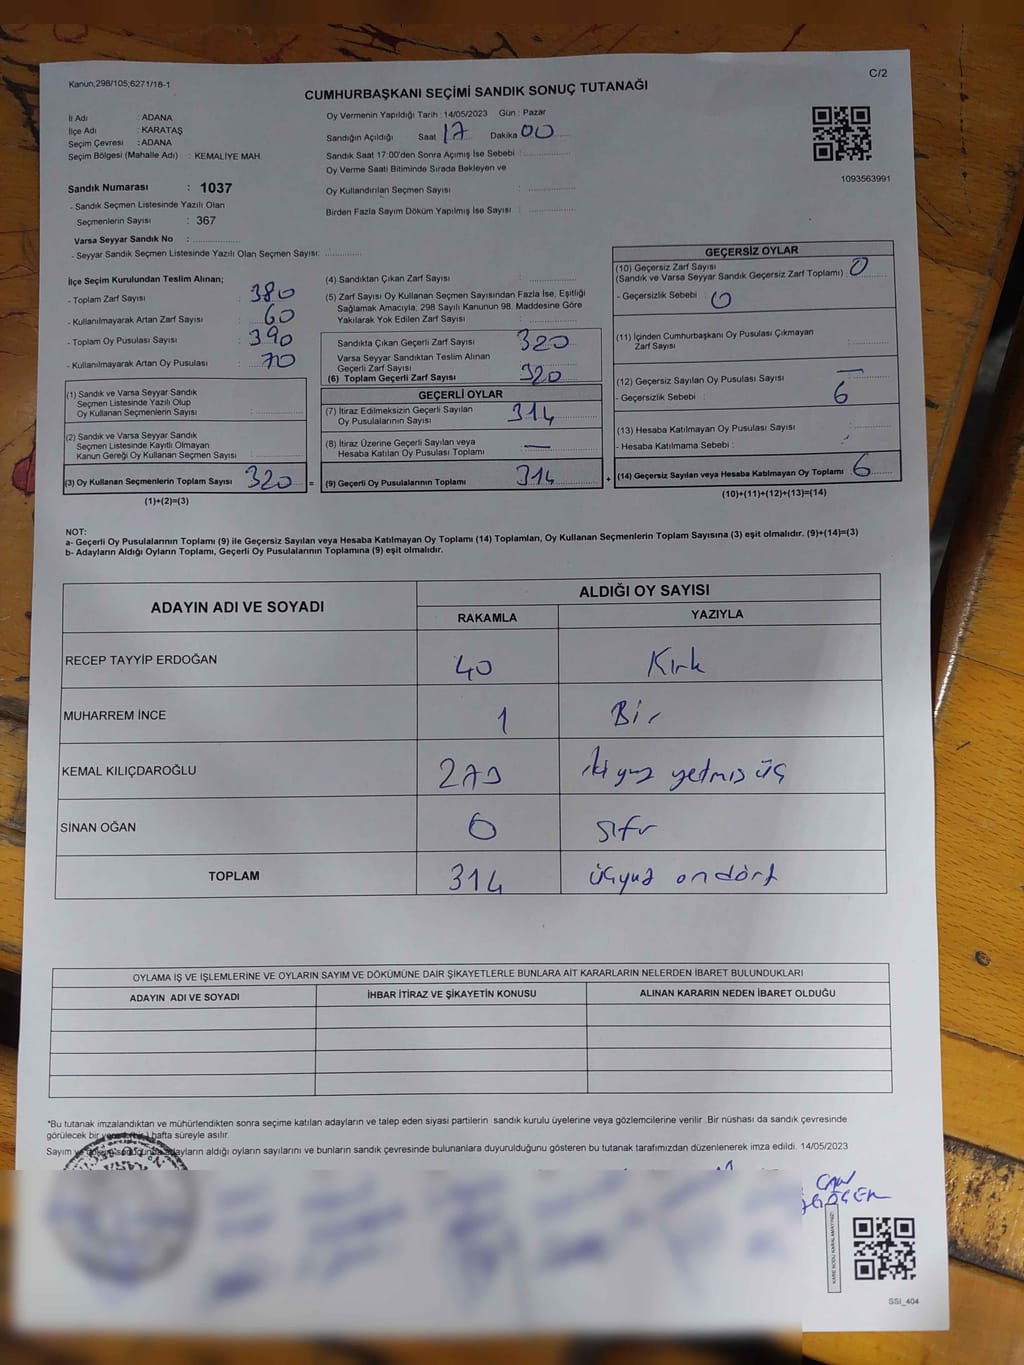 Kanun;298/105;6271/18-1
C/2
CUMHURBAŞKANI SEÇİMİ SANDIK SONUÇ TUTANAĞI
İl Adı : ADANA
İlçe Adı : KARATAŞ
Seçim Çevresi : ADANA
Seçim Bölgesi (Mahalle Adı) : KEMALİYE MAH.
Oy Vermenin Yapıldığı Tarih : 14/05/2023 Gün : Pazar
Sandığın Açıldığı Saat 17 Dakika 00
Sandık Saat 17:00'den Sonra Açımış İse Sebebi :
Oy Verme Saati Bitiminde Sırada Bekleyen ve
Oy Kullandırılan Seçmen Sayısı :
Birden Fazla Sayım Döküm Yapılmış İse Sayısı :
1093563991
Sandık Numarası : 1037
- Sandık Seçmen Listesinde Yazılı Olan
Seçmenlerin Sayısı : 367
Varsa Seyyar Sandık No :
- Seyyar Sandık Seçmen Listesinde Yazılı Olan Seçmen Sayısı:
İlçe Seçim Kurulundan Teslim Alınan;
- Toplam Zarf Sayısı : 380
- Kullanılmayarak Artan Zarf Sayısı : 60
- Toplam Oy Pusulası Sayısı : 390
- Kullanılmayarak Artan Oy Pusulası : 70
(1) Sandık ve Varsa Seyyar Sandık
Seçmen Listesinde Yazılı Olup
Oy Kullanan Seçmenlerin Sayısı :
(2) Sandık ve Varsa Seyyar Sandık
Seçmen Listesinde Kayıtlı Olmayan
Kanun Gereği Oy Kullanan Seçmen Sayısı :
(3) Oy Kullanan Seçmenlerin Toplam Sayısı : 320 =
(1)+(2)=(3)
(4) Sandıktan Çıkan Zarf Sayısı :
(5) Zarf Sayısı Oy Kullanan Seçmen Sayısından Fazla İse, Eşitliği
Sağlamak Amacıyla; 298 Sayılı Kanunun 98. Maddesine Göre
Yakılarak Yok Edilen Zarf Sayısı :
Sandıkta Çıkan Geçerli Zarf Sayısı : 320
Varsa Seyyar Sandıktan Teslim Alınan
Geçerli Zarf Sayısı :
(6) Toplam Geçerli Zarf Sayısı : 320
GEÇERLİ OYLAR
(7) İtiraz Edilmeksizin Geçerli Sayılan
Oy Pusulalarının Sayısı : 314
(8) İtiraz Üzerine Geçerli Sayılan veya
Hesaba Katılan Oy Pusulası Toplamı : —
(9) Geçerli Oy Pusulalarının Toplamı : 314 +
GEÇERSİZ OYLAR
(10) Geçersiz Zarf Sayısı
(Sandık ve Varsa Seyyar Sandık Geçersiz Zarf Toplamı) : 0
- Geçersizlik Sebebi : 0
(11) İçinden Cumhurbaşkanı Oy Pusulası Çıkmayan
Zarf Sayısı :
(12) Geçersiz Sayılan Oy Pusulası Sayısı : —
- Geçersizlik Sebebi : 6
(13) Hesaba Katılmayan Oy Pusulası Sayısı :
- Hesaba Katılmama Sebebi :
(14) Geçersiz Sayılan veya Hesaba Katılmayan Oy Toplamı : 6
(10)+(11)+(12)+(13)=(14)
NOT:
a- Geçerli Oy Pusulalarının Toplamı (9) ile Geçersiz Sayılan veya Hesaba Katılmayan Oy Toplamı (14) Toplamları, Oy Kullanan Seçmenlerin Toplam Sayısına (3) eşit olmalıdır. (9)+(14)=(3)
b- Adayların Aldığı Oyların Toplamı, Geçerli Oy Pusulalarının Toplamına (9) eşit olmalıdır.
ADAYIN ADI VE SOYADI
ALDIĞI OY SAYISI
RAKAMLA YAZIYLA
RECEP TAYYİP ERDOĞAN 40 Kırk
MUHARREM İNCE 1 Bir
KEMAL KILIÇDAROĞLU 273 iki yuz yetmış üç
SİNAN OĞAN 0 sıfır
TOPLAM 314 üçyuz ondört
OYLAMA İŞ VE İŞLEMLERİNE VE OYLARIN SAYIM VE DÖKÜMÜNE DAİR ŞİKAYETLERLE BUNLARA AİT KARARLARIN NELERDEN İBARET BULUNDUKLARI
ADAYIN ADI VE SOYADI İHBAR İTİRAZ VE ŞİKAYETİN KONUSU ALINAN KARARIN NEDEN İBARET OLDUĞU
*Bu tutanak imzalandıktan ve mühürlendikten sonra seçime katılan adayların ve talep eden siyasi partilerin sandık kurulu üyelerine veya gözlemcilerine verilir. Bir nüshası da sandık çevresinde
görülecek bir hafta süreyle asılır.
Sayım adayların aldığı oyların sayılarını ve bunların sandık çevresinde bulunanlara duyurulduğunu gösteren bu tutanak tarafımızdan düzenlenerek imza edildi. 14/05/2023
CAN
KARE KODU KARALAMAYINIZ!
SSI_404